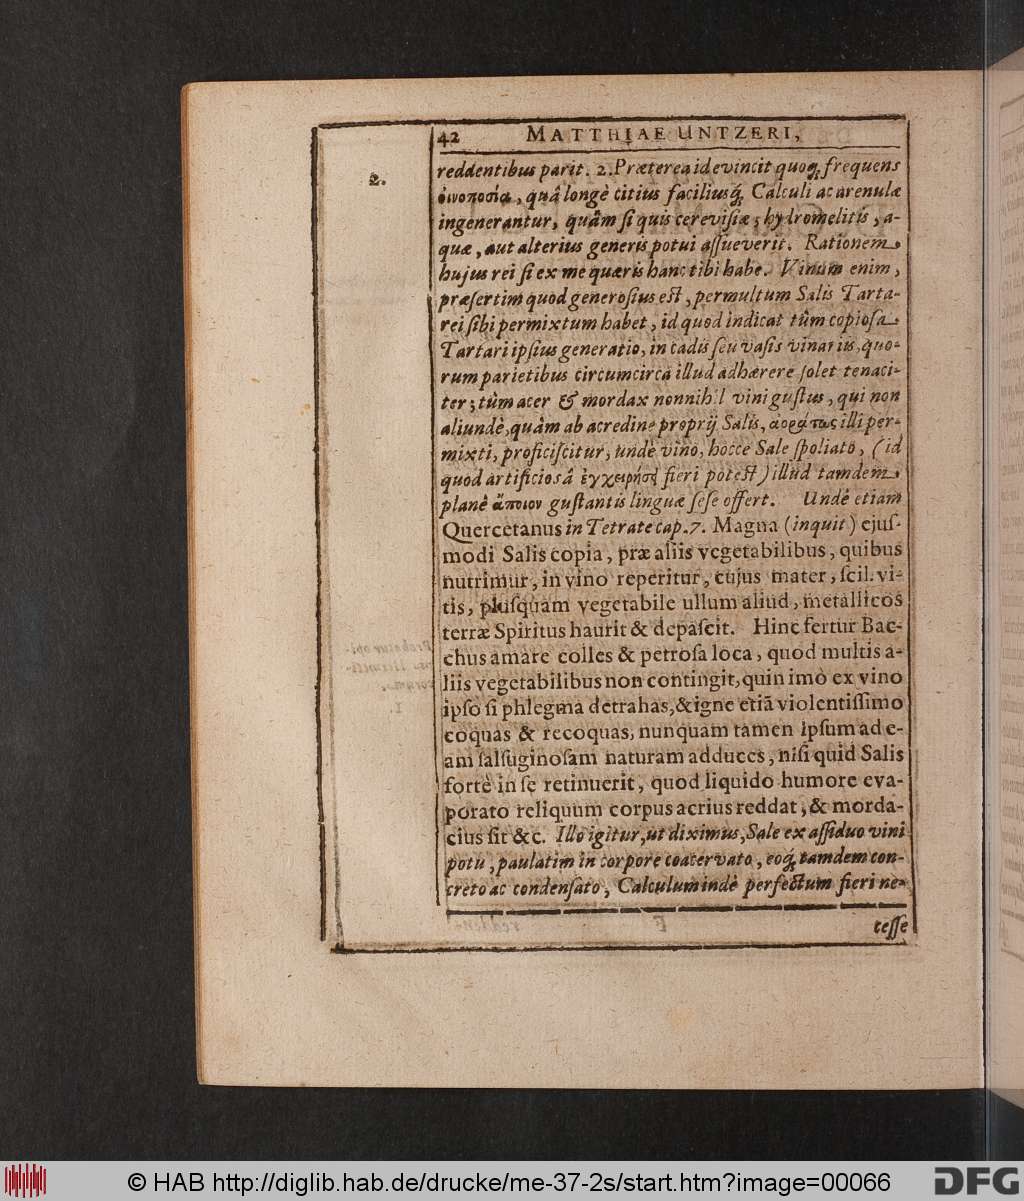 42 MATTHIAE UNTZERI,
2.
reddentibus parit. 2. Præterea id evincit quoq; frequens
οἰνοποσία, quâ longè citius faciliusq́; Calculi ac arenulæ
ingenerantur, quâm si quis cerevisiæ, hydromelitis, a-
quæ, aut alterius generis potui assueverit. Rationem
hujus rei si ex me quæris hanc tibi habe. Vinum enim,
præsertim quod generosius est, permultum Salis Tarta-
rei sibi permixtum habet, id quod indicat tûm copiosa
Tartari ipsius generatio, in cadis seu vasis vinariis, quo-
rum parietibus circumcirca illud adhærere solet tenaci-
ter; tûm acer & mordax nonnihil vini gustus, qui non
aliundè, quâm ab acredine proprij Salis, ἀοράτως illi per-
mixti, proficiscitur, undè vino, hocce Sale spoliato, (id
quod artificiosâ ἐγχειρήσ{ει} fieri potest) illud tamdem
planê ἄποιον gustantis linguæ sese offert. Undè etiam
Quercetanus in Tetrate cap. 7. Magna (inquit) ejus-
modi Salis copia, præ aliis vegetabilibus, quibus
nutrimur, in vino reperitur, cujus mater, scil. vi-
tis, plusquam vegetabile ullum aliud, metallicos
terræ Spiritus haurit & depascit. Hinc fertur Bac-
chus amare colles & petrosa loca, quod multis a-
liis vegetabilibus non contingit, quin imò ex vino
ipso si phlegma detrahas, & igne etiã violentissimo
coquas & recoquas, nunquam tamen ipsum ad e-
am salsuginosam naturam adduces, nisi quid Salis
fortè in se retinuerit, quod liquido humore eva-
porato reliquum corpus acrius reddat, & morda-
cius sit &c. Illo igitur, ut diximus, Sale ex assiduo vini
potu, paulatim in corpore coacervato, eoq́; tamdem con-
creto ac condensato, Calculum indè perfectum fieri ne-
cesse
© HAB http://diglib.hab.de/drucke/me-37-2s/start.htm?image=00066
DFG